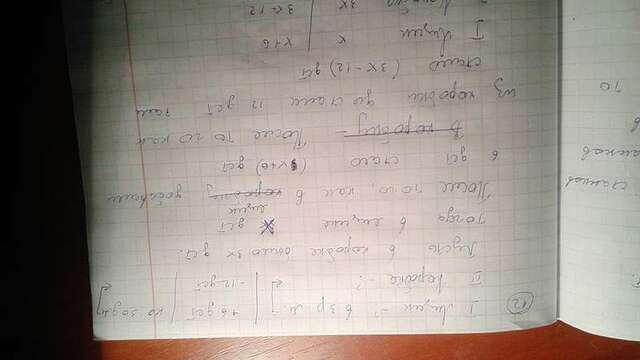 12 I Ящик -? в 3 р м. +6 дет
II Коробка -? -12 дет
Пусть в коробке было 3x дет.
тогда в ящике x дет
После того, как в ящик добавили
6 дет стало (x+6) дет
В коробку После того как
из коробки достали 12 дет там
стало (3x-12) дет
I Ящик x x+6
3x 3x-12